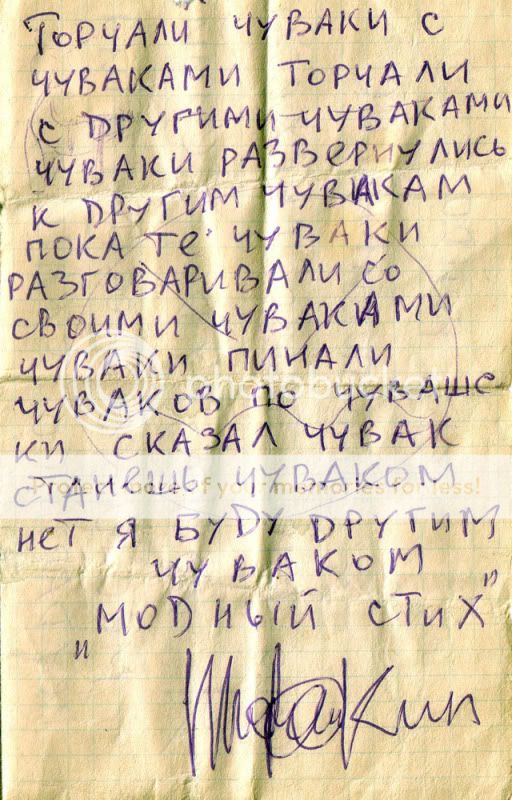 ТОРЧАЛИ ЧУВАКИ С
ЧУВАКАМИ ТОРЧАЛИ
С ДРУГИМИ ЧУВАКАМИ
ЧУВАКИ РАЗВЕРНУЛИСЬ
К ДРУГИМ ЧУВАКАМ
ПОКА ТЕ ЧУВАКИ
РАЗГОВАРИВАЛИ СО
СВОИМИ ЧУВАКАМИ
ЧУВАКИ ПИНАЛИ
ЧУВАКОВ ПО ЧУВАШС
КИ СКАЗАЛ ЧУВАК
СТАНЕШЬ ЧУВАКОМ
НЕТ Я БУДУ ДРУГИМ
ЧУВАКОМ
"МОДНЫЙ СТИХ"
photobucket
Protect more of your memories for less!